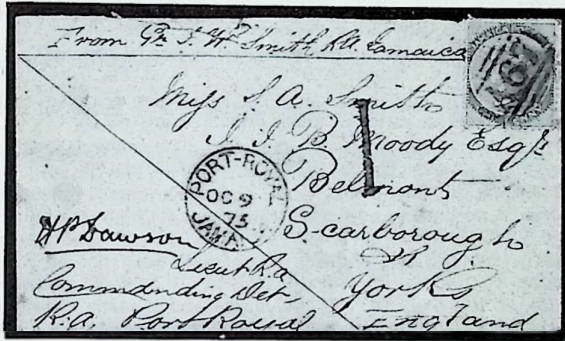 From Gr. T. Wm. Smith, R.A. Jamaica
Miss S. A. Smith
J. J. B. Moody Esqr.
Belmont
Scarborough
Yorks
England
PORT-ROYAL
OC 9
75
JAMA
1
H P Dawson
Lieut R.A
Commanding Det,
R.A. Port Royal